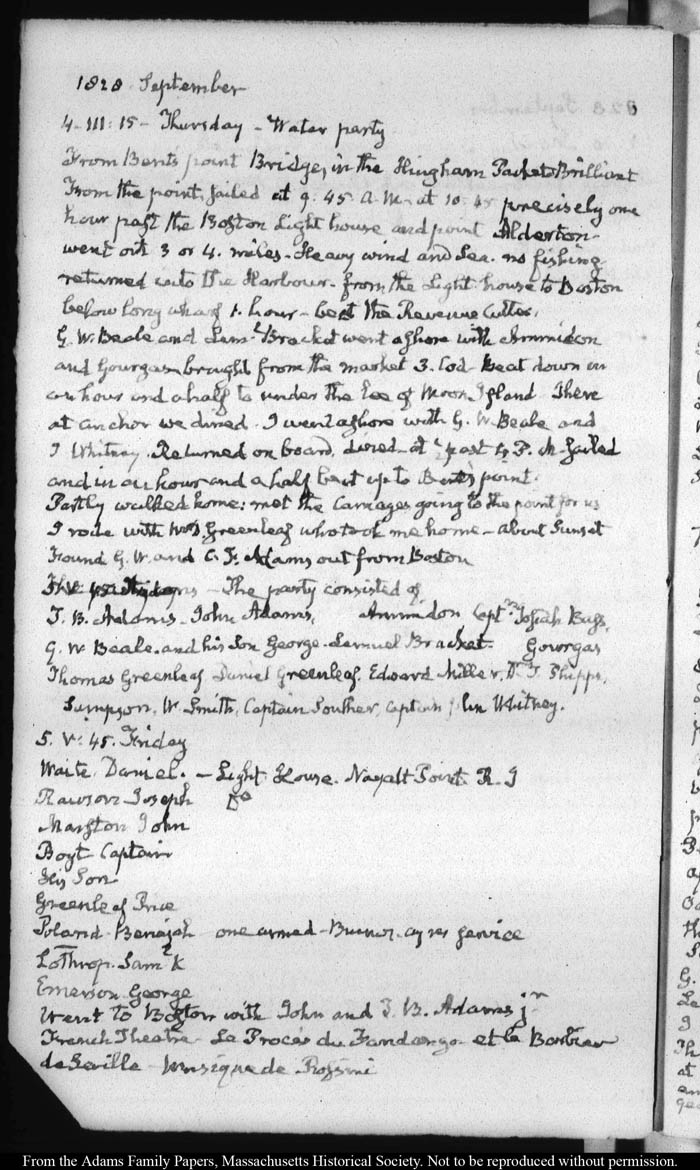 1828 September
4. III: 15 - Thursday - Water party
From Bent's point Bridge, in the Hingham Packet Brilliant
From the point sailed at 9. 45 A. M. at 10. 45 precisely one
hour past the Boston Light house and point Alderton -
went out 3 or 4. miles - Heavy wind and Sea. no fishing
returned into the Harbour. from the Light-house to Boston
below long wharf 1. hour - beat the Revenue Cutter.
G. W. Beale and Saml. Bracket went ashore with Ammidon
and Gourgas brought from the market 3. Cod - Beat down in
an hour and a half to under the Lee of Moon Island There
at anchor we dined. I went ashore with G. W. Beale and
J Whitney. Returned on board, dined - at ½ past 4 P. M. sailed
and in an hour and a half beat up to Bent's point.
Partly walked home: met the Carriages going to the point for us
I rode with Greenleaf who took me home - about Sunset
Found G. W. and C. F. Adams out from Boston
- The party consisted of
T. B. Adams. John Adams, Ammidon Captn. Josiah Bass,
G. W. Beale. and his Son George. Lemuel Bracket. Gourgas
Thomas Greenleaf. Daniel Greenleaf. Edward Miller, Dr. T. Phipps,
Sampson, W. Smith, Captain Souther, Captain John Whitney.
5. V: 45. Friday
Waite. Daniel. - Light House. Point. R. I
Rawson Joseph Do
Marston John
Boyt Captain
His Son
Greenleaf Price
Poland - Benajah one armed - Buenos ayres service
Lothrop. Saml. K
Emerson George
Went to Boston with John and T. B. Adams jr.
French Theatre - Le Procès du Fandango et le Barbier
de Seville - Musique de Rossini
828 September
From the Adams Family Papers, Massachusetts Historical Society. Not to be reproduced without permission.